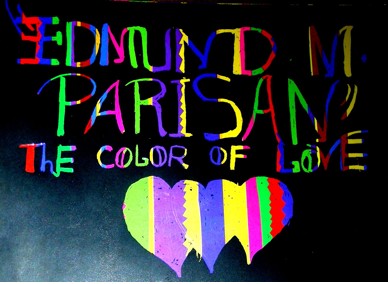 EDMUND M.
PARISAN
THE COLOR OF LOVE